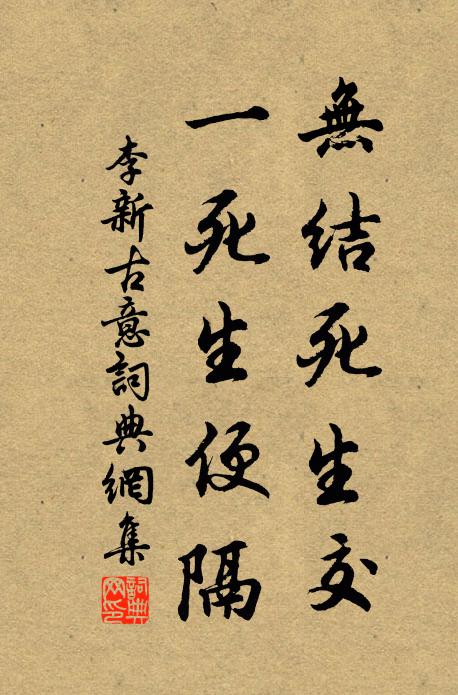 無结死生交
一死生便隔
李新古意詞典網集
詞典网印